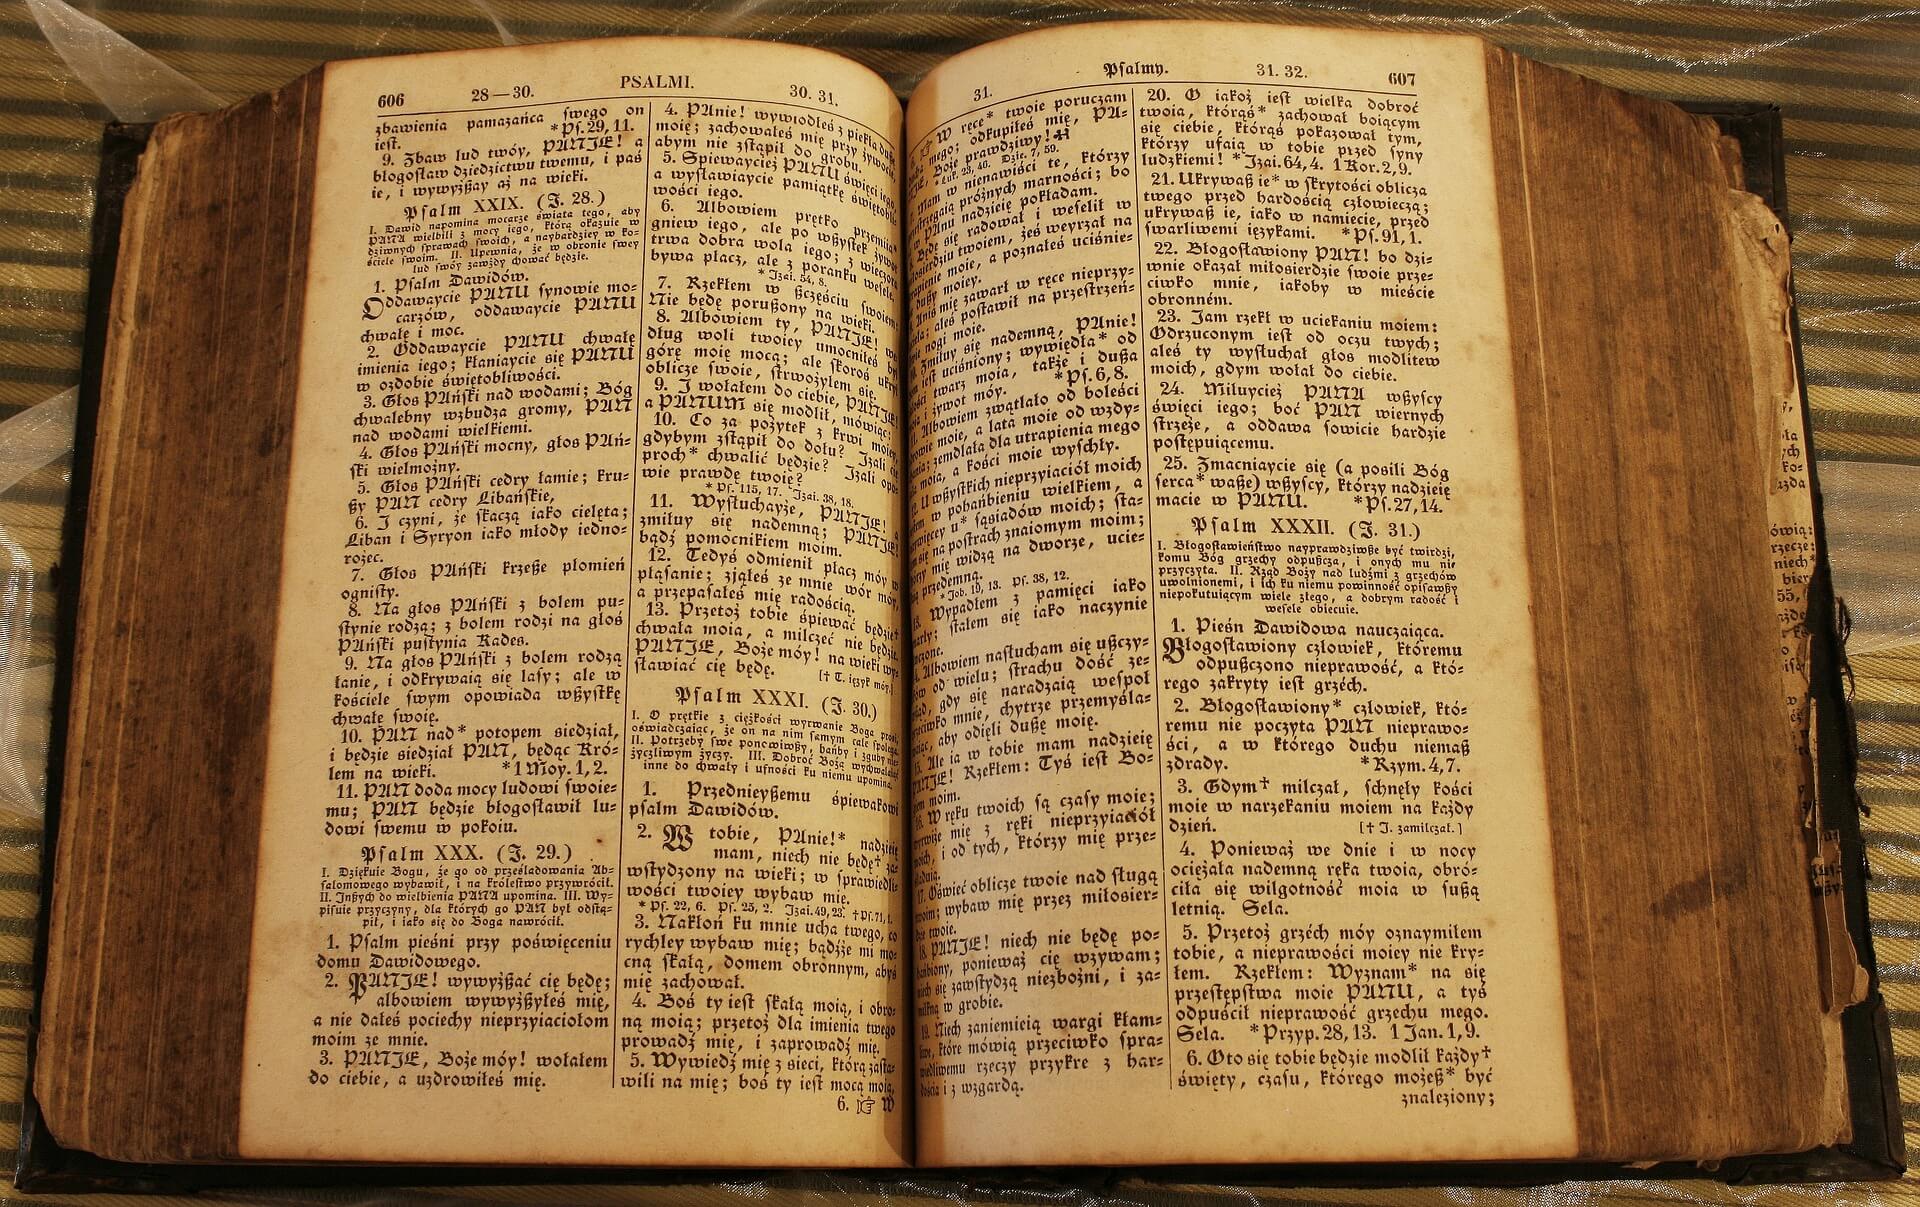 606 28—30. PSALMI. 30. 31.
zbawienia pamazańca swego on
jest. *Ps. 29, 11.
9. Zbaw lud twóy, PANJE! a
błogosław dziedzictwu twemu, i paś
ie, i wywyżßay aż na wieki.
Psalm XXIX. (J. 28.)
I. Dawid napomina mocarze świata tego, aby
PANA wielbili z mocy iego, którą okazuie w
dziwnych sprawach swoich, a naybardziey w ko-
ściele swoim. II. Upewnia, że w obronie swey
lud swóy zawżdy chować będzie.
1. Psalm Dawidów.
Oddawaycie PANU synowie mo-
carzów, oddawaycie PANU
chwałę i moc.
2. Oddawaycie PANU chwałę
imienia iego; kłaniaycie się PANU
w ozdobie świętobliwości.
3. Głos PAński nad wodami; Bóg
chwalebny wzbudza gromy, PAN
nad wodami wielkiemi.
4. Głos PAński mocny, głos PAń-
ski wielmożny.
5. Głos PAński cedry łamie; kru-
ßy PAN cedry Libańskie,
6. J czyni, że skaczą iako cielęta;
Liban i Syryon iako młody iedno-
rożec.
7. Głos PAński krzeße płomień
ognisty.
8. Na głos PAński z bolem pu-
stynie rodzą; z bolem rodzi na głos
PAński pustynia Kades.
9. Na głos PAński z bolem rodzą
łanie, i odkrywaią się lasy; ale w
kościele swym opowiada wßystkę
chwałę swoię.
10. PAN nad* potopem siedział,
i będzie siedział PAN, będąc Kró-
lem na wieki. *1 Moy. 1, 2.
11. PAN doda mocy ludowi swoie-
mu; PAN będzie błogosławił lu-
dowi swemu w pokoiu.
Psalm XXX. (J. 29.)
I. Dziękuie Bogu, że go od prześladowania Ab-
salomowego wybawił, i na królestwo przywrócił.
II. Jnßych do wielbienia PANA upomina. III. Wy-
pisuie przyczyny, dla których go PAN był odstą-
pił, i iako się do Boga nawrócił.
1. Psalm pieśni przy poświęceniu
domu Dawidowego.
2. PANJE! wywyżßać cię będę;
albowiem wywyżßyłeś mię,
a nie dałeś pociechy nieprzyiaciołom
moim ze mnie.
3. PANJE, Boże móy! wołałem
do ciebie, a uzdrowiłeś mię.
4. PAnie! wywiodłeś z piekła dußę
moię; zachowałeś mię przy żywocie,
abym nie zstąpił do grobu.
5. Spiewayciez PANU święci iego,
a wysławiaycie pamiątkę świętobli-
wości iego.
6. Albowiem prętko przemiia*
gniew iego, ale po wßystek żywot
trwa dobra wola iego; z wieczora
bywa płacz, ale z poranku wesele.
* Jzai. 54, 8.
7. Rzekłem w ßczęściu swoiem:
Nie będę porußony na wieki.
8. Albowiem ty, PANJE!
dług woli twoiey umocniłeś
górę moię mocą; ale skoroś ukrył
oblicze swoie, strwożyłem się.
9. J wołałem do ciebie, PANJE!
a PANUM się modlił, mówiąc:
10. Co za pożytek z krwi moiey,
gdybym zstąpił do dołu? Jzali cię
proch* chwalić będzie? Jzali opo-
wie prawdę twoię?
* Ps. 115, 17. Jzai. 38, 18.
11. Wysłuchayże, PANJE! a
zmiłuy się nademną; PANJE!
bądź pomocnikiem moim.
12. Tedyś odmienił płacz móy w
pląsanie; zjąłeś ze mnie wór móy,
a przepasałeś mię radością.
13. Przetoż tobie śpiewać będzie†
chwała moia, a milczeć nie będzie.
PANJE, Boże móy! na wieki wy-
sławiać cię będę. [† T. ięzyk móy.]
Psalm XXXI. (J. 30.)
I. O prętkie z ciężkości wyrwanie Boga prosi,
oświadczaiąc, że on na nim samym cale spolega.
II. Potrzeby swe ponowiwßy, hańby i zguby nie-
życzliwym życzy. III. Dobroć Bożą wychwalaiąc
inne do chwały i ufności ku niemu upomina.
1. Przednieyßemu śpiewakowi
psalm Dawidów.
2. W tobie, PAnie!* nadzieię
mam, niech nie będę† za-
wstydzony na wieki; w sprawiedli-
wości twoiey wybaw mię.
* Ps. 22, 6. Ps. 25, 2. Jzai. 49, 23. † Ps. 71, 1.
3. Nakłoń ku mnie ucha twego, co
rychley wybaw mię; bądźże mi mo-
cną skałą, domem obronnym, abyś
mię zachował.
4. Boś ty iest skałą moią, i obro-
ną moią; przetoż dla imienia twego
prowadź mię, i zaprowadź mię.
5. Wywiedź mię z sieci, którą zasta-
wili na mię; boś ty iest mocą moią,
6. ☞ W
31. Psalmy. 31. 32. 607
6. ☞ W ręce* twoie poruczam
mego; odkupiłeś mię, PA-
Boże prawdziwy!
* Łuk. 23, 46. Dzie. 7, 59.
Mam w nienawiści te, którzy
przestrzegaią próżnych marności; bo
w PAnu nadzieię pokładam.
Będę się radował i weselił w
miłosierdziu twoiem, żeś weyrzał na
utrapienie moie, a poznałeś uciśnie-
dußy moiey.
mię zawarł w ręce nieprzy-
aleś postawił na przestrzeń-
nogi moie.
Zmiłuy się nademną, PAnie!
iest uciśniony; wywiędła* od
twarz moia, także i dußa
i żywot móy. *Ps. 6, 8.
Albowiem zwątlało od boleści
moie, a lata moie od wzdy-
zemdlała dla utrapienia mego
moia, a kości moie wyschły.
U wßystkich nieprzyiaciół moich
w pohańbieniu wielkiem, a
u* sąsiadów moich; sta-
się na postrach znaiomym moim;
którzy mię widzą na dworze, ucie-
przedemną.
* Job. 19, 13. Ps. 38, 12.
Wypadłem z pamięci iako
umarły; stałem się iako naczynie
Albowiem nasłucham się ußczy-
od wielu; strachu dość ze-
gdy się naradzaią wespoł
przeciwko mnie, chytrze przemyśla-
aby odięli dußę moię.
15. Ale ia w tobie mam nadzieię
PANJE! Rzekłem: Tyś iest Bo-
moim.
16. W ręku twoich są czasy moie;
wyrwiże mię z ręki nieprzyiaciół
moich, i od tych, którzy mię prze-
śladuią.
17. Oświeć oblicze twoie nad sługą
twoim; wybaw mię przez miłosier-
dzie twoie.
18. PANJE! niech nie będę po-
hańbiony, ponieważ cię wzywam;
niech się zawstydzą niezbożni, i za-
milkną w grobie.
19. Niech zaniemieią wargi kłam-
liwe, które mówią przeciwko spra-
wiedliwemu rzeczy przykre z har-
dością i z wzgardą.
20. O iakoż iest wielka dobroć
twoia, którąś* zachował boiącym
się ciebie, którąś pokazował tym,
którzy ufaią w tobie przed syny
ludzkiemi! *Jzai. 64, 4. 1 Kor. 2, 9.
21. Ukrywaß ie* w skrytości oblicza
twego przed hardością człowieczą;
ukrywaß ie, iako w namiecie, przed
swarliwemi ięzykami. *Ps. 91, 1.
22. Błogosławiony PAN! bo dzi-
wnie okazał miłosierdzie swoie prze-
ciwko mnie, iakoby w mieście
obronném.
23. Jam rzekł w uciekaniu moiem:
Odrzuconym iest od oczu twych;
aleś ty wysłuchał głos modlitew
moich, gdym wołał do ciebie.
24. Miłuyciez PANA wßyscy
święci iego; boć PAN wiernych
strzeże, a oddawa sowicie hardzie
postępuiącemu.
25. Zmacniaycie się (a posili Bóg
serca* waße) wßyscy, którzy nadzieię
macie w PANU. *Ps. 27, 14.
Psalm XXXII. (J. 31.)
I. Błogosławieństwo nayprawdziwße być twirdzi,
komu Bóg grzechy odpußcza, i onych mu nie
przyczyta. II. Rząd Boży nad ludźmi z grzechów
uwolnionemi, i ich ku niemu powinność opisawßy
niepokutuiącym wiele złego, a dobrym radość i
wesele obiecuie.
1. Pieśń Dawidowa nauczaiąca.
Błogosławiony człowiek, któremu
odpußczono nieprawość, a któ-
rego zakryty iest grzéch.
2. Błogosławiony* człowiek, któ-
remu nie poczyta PAN nieprawo-
ści, a w którego duchu niemaß
zdrady. *Rzym. 4, 7.
3. Gdym† milczał, schnęły kości
moie w narzekaniu moiem na każdy
dzień. [† J. zamilczał.]
4. Ponieważ we dnie i w nocy
ociężała nademną ręka twoia, obró-
ciła się wilgotność moia w sußą
letnią. Sela.
5. Przetoż grzéch móy oznaymiłem
tobie, a nieprawości moiey nie kry-
łem. Rzekłem: Wyznam* na się
przestępstwa moie PANU, a tyś
odpuścił nieprawość grzechu mego.
Sela. *Przyp. 28, 13. 1 Jan. 1, 9.
6. Oto się tobie będzie modlił każdy†
święty, czasu, którego możeß* być
znaleziony;